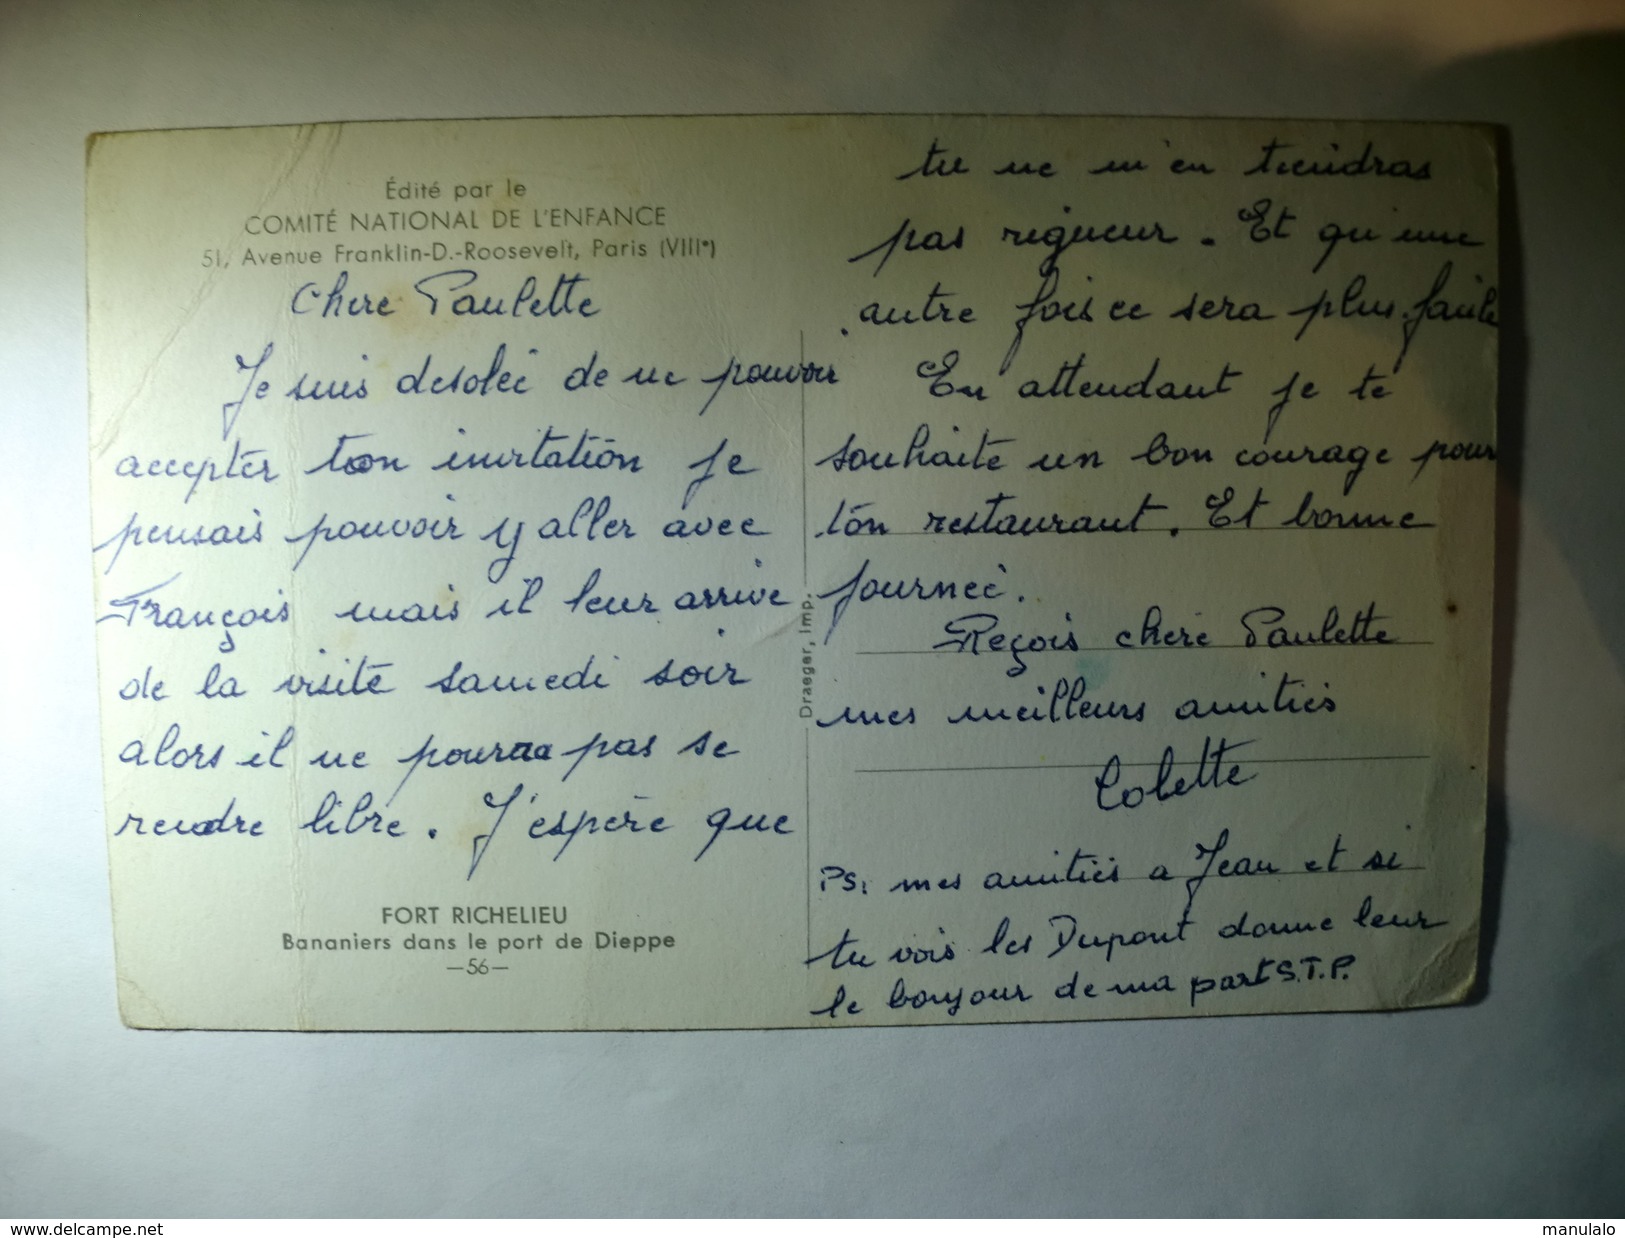 Édité par le
COMITÉ NATIONAL DE L'ENFANCE
51, Avenue Franklin-D.-Roosevelt, Paris (VIIIᵉ)
Chere Paulette
Je suis desoleé de ne pouvoir
accepter ton invitation je
pensais pouvoir y aller avec
François mais il leur arrive
de la visite samedi soir
alors il ne pouraa pas se
rendre libre. J'espère que
FORT RICHELIEU
Bananiers dans le port de Dieppe
—56—
Draeger, Imp.
tu ne m'en tiendras
pas rigueur. Et qu'une
autre fois ce sera plus facile
En attendant je te
souhaite un bon courage pour
ton restaurant. Et bonne
journeé.
Reçois chere Paulette
mes meilleurs amitiés
Colette
PS. mes amitiés a Jean et si
tu vois les Dupont donne leur
le bonjour de ma part S.T.P.
www.delcampe.net
manulalo